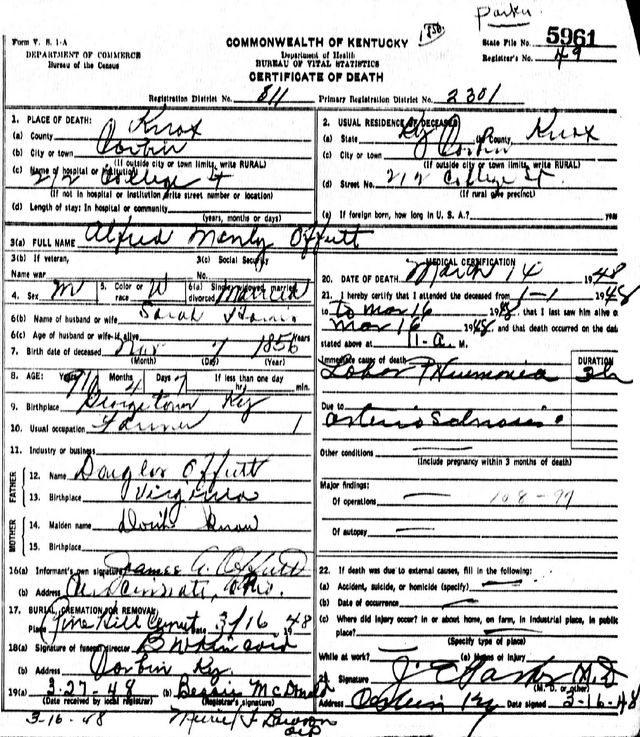 Parker
1856
Form V. S. 1-A
DEPARTMENT OF COMMERCE
Bureau of the Census
COMMONWEALTH OF KENTUCKY
Department of Health
BUREAU OF VITAL STATISTICS
CERTIFICATE OF DEATH
State File No. 5961
Registrar's No. 49
Registration District No. 811 Primary Registration District No. 2301
1. PLACE OF DEATH:
(a) County Knox
(b) City or town Corbin
(If outside city or town limits, write RURAL)
(c) Name of hospital or institution: 212 College St
(If not in hospital or institution write street number or location)
(d) Length of stay: In hospital or community
(years, months or days)
2. USUAL RESIDENCE OF DECEASED
(a) State Ky (b) County Knox
(c) City or town Corbin
(If outside city or town limits, write RURAL)
(d) Street No. 212 College St
(If rural give precinct)
(e) If foreign born, how long in U. S. A.? years
3(a) FULL NAME Alfred Manly Offutt
3(b) If veteran, Name war
3(c) Social Security No.
4. Sex M 5. Color or race W 6(a) Single, widowed, married, divorced Married
6(b) Name of husband or wife Sarah
6(c) Age of husband or wife if alive
7. Birth date of deceased Nov 7 1856
(Month) (Day) (Year)
8. AGE: Years 91 Months 4 Days 7 If less than one day hr. min.
9. Birthplace Georgetown Ky
10. Usual occupation Farmer 1
11. Industry or business
FATHER
12. Name Douglas Offutt
13. Birthplace Virginia
MOTHER
14. Maiden name Don't Know
15. Birthplace
16(a) Informant's own signature James A. Offutt
(b) Address Cincinnati, Ohio.
17. BURIAL, CREMATION OR REMOVAL
Place Pine Hill Cemet Date 3/16 1948
18(a) Signature of funeral director
(b) Address Corbin Ky
19(a) 3-27-48 (b) Bessie McDonald
(Date received by local registrar) (Registrar's signature)
3-16-48
MEDICAL CERTIFICATION
20. DATE OF DEATH March 14 1948
21. I hereby certify that I attended the deceased from 1-1 1948
to Mar 16 1948, that I last saw him alive on
Mar 16 1948 and that death occurred on the date
stated above at 11-a. M.
Immediate cause of death DURATION
Lobar Pneumonia 3 da
Due to
Arterio Sclerosis
Other conditions
(Include pregnancy within 3 months of death)
Major findings:
Of operations 108-97
Of autopsy
22. If death was due to external causes, fill in the following:
(a) Accident, suicide, or homicide (specify)
(b) Date of occurrence
(c) Where did injury occur? in or about home, on farm, in industrial place, in public
place?
(Specify type of place)
While at work? (e) Means of injury
Signature M. D
(M. D. or other)
Address Corbin Ky Date signed 3-16-48